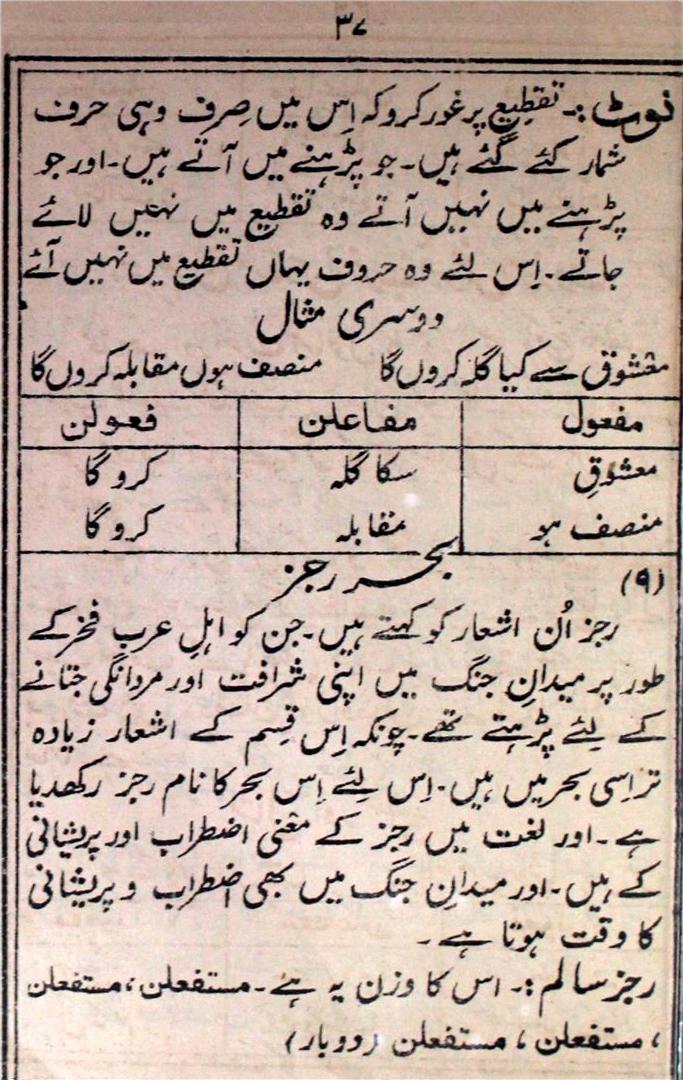 ۳۷
نوٹ:۔ تقطیع پر غور کرو کہ اِس میں صِرف وہی حرف
شمار کئے گئے ہیں۔ جو پڑہنے میں آتے ہیں۔ اور جو
پڑہنے میں نہیں آتے وہ تقطیع میں نہیں لائے
جاتے۔ اِس لئے وہ حروف یہاں تقطیع میں نہیں آئے
دوسری مثال
معشوق سے کیا گلہ کروں گا منصف ہوں مقابلہ کروں گا
مفعول مفاعلن فعولن
معشوقِ سکا گلہ کرو گا
منصف ہو مقابلہ کرو گا
(۹) بحر رجز
رجز اُن اشعار کو کہتے ہیں۔ جن کو اہلِ عرب فخر کے
طور پر میدانِ جنگ میں اپنی شرافت اور مردانگی جتانے
کے لِئے پڑہتے تھے۔ چونکہ اِس قِسم کے اشعار زیادہ
تر اِسی بحر میں ہیں۔ اِس لِئے اِس بحر کا نام رجز رکھدیا
ہے۔ اور لغت میں رجز کے معنی اضطراب اور پریشانی
کے ہیں۔ اور میدانِ جنگ میں بھی اضطراب و پریشانی
کا وقت ہوتا ہے۔
رجز سالم:۔ اس کا وزن یہ ہے۔ مستفعلن، مستفعلن
، مستفعلن، مستفعلن (دوبار)